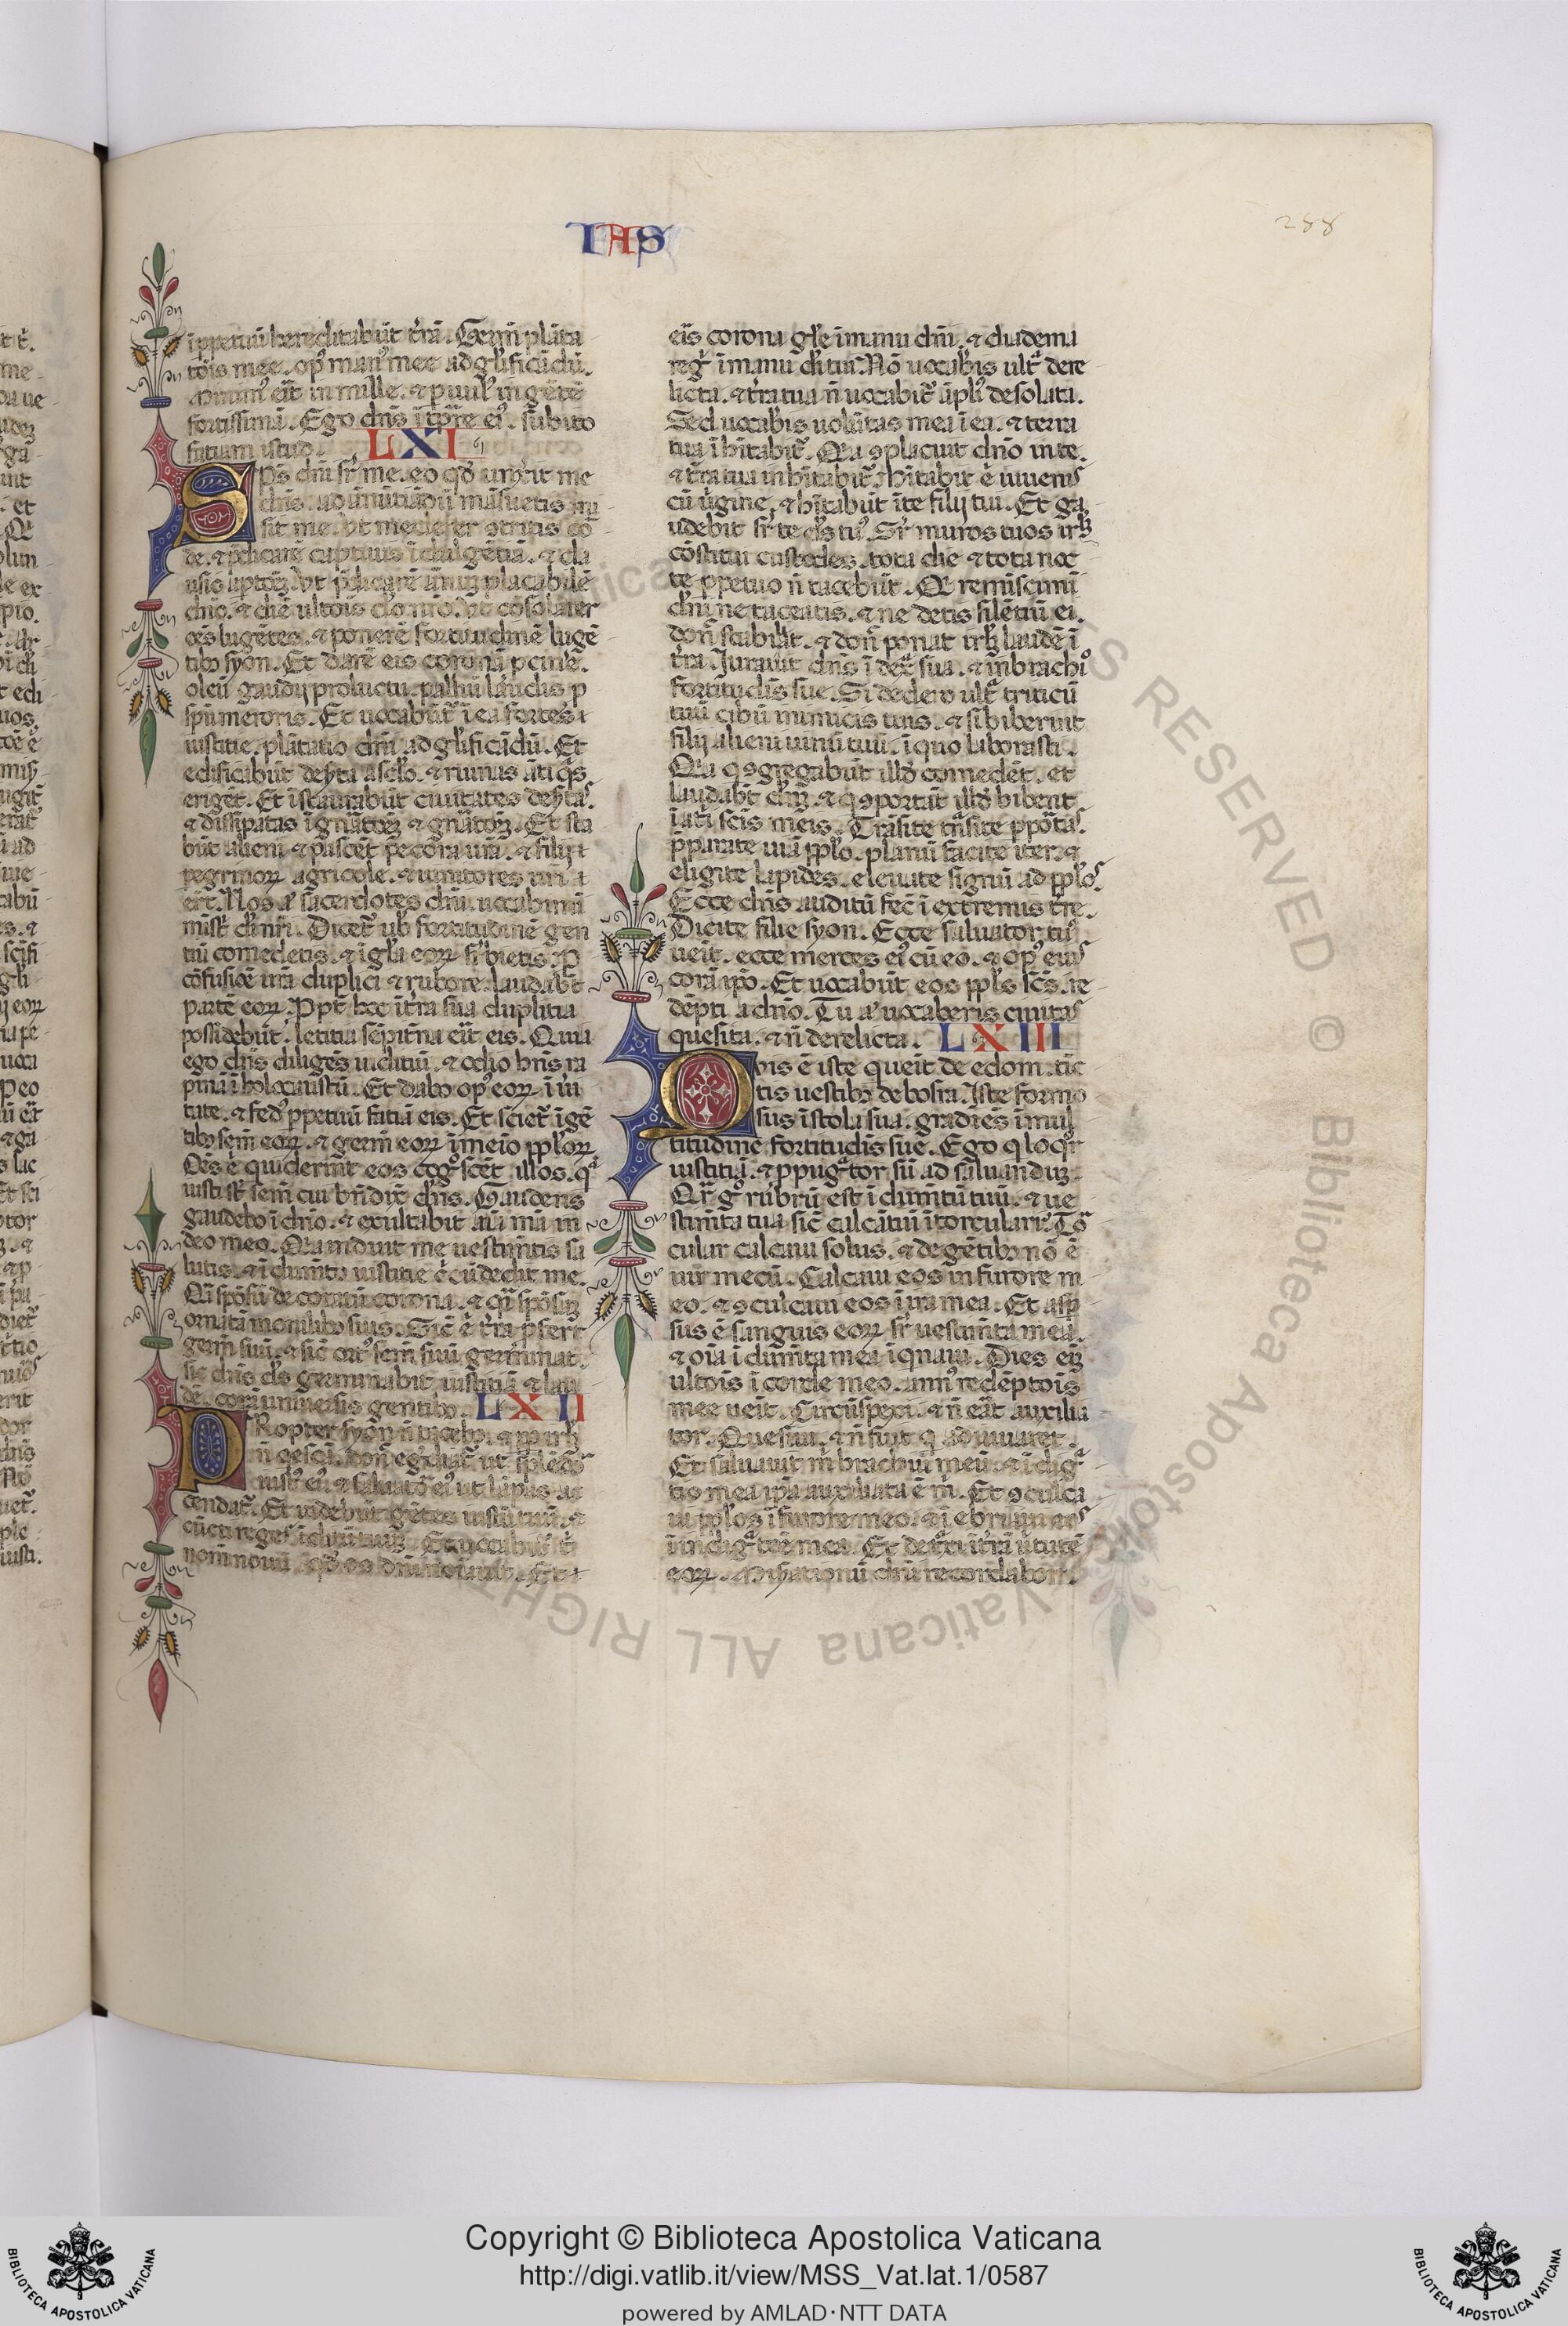 IAS
288
ipp̱etuū hereditabūt t̄rā. Germ̄ plāta
tōis mee. op̱ꝰ manꝰ mee ad gl̄ificādū.
Minimꝰ erit in mille. ⁊ p̱uulꝰ in gētē
fortissimā. Ego dn̄s ī tp̄re eiꝰ. subito
fatiam istud. LXI
Sp̄s dn̄i sr̄ me. eo qd̓ unx̄it me
dn̄s. ad ānūtiādū māsuetis mi
sit me. ut mederer ꝯtritis cor
de. ⁊ p̄dicarē captiuis īdulgētiā. ⁊ cla
usis aptōꝫ. ut p̄dicarē ānuꝫ placabilē
dn̄o. ⁊ diē ultōis do nr̄o. ut cōsolarer
oēs lugētes. ⁊ ponerē fortitudinē lugē
tibꝫ syon. Et darē eis coronā p ciūe.
oleū gaudij pro luctu. palliū laudis p
sp̄u meroris. Et uocabūtr̄ ī ea fortes
iustitie. plātatio dn̄i ad gl̄ificādū. Et
edificabūt deſ̄ta a sclo. ⁊ ruinas ātiq̄s
erigēt. Et īstaurabūt ciuitates deſ̄tas.
⁊ dissipatas ī gnātōꝫ ⁊ gnātōꝫ. Et sta
būt alieni ⁊ pascēt pecora ur̄a. ⁊ filij
pegrinoꝝ agricole. ⁊ uinitores ur̄i
ert̄. Uos aū sacerdotes dn̄i uocabimi
mistr̄ dei nr̄i. Dicet̄ uob̄ fortitudinē gen
tiū comedetis. ⁊ ī gl̄ia eoꝝ sr̄bietis. P
cōfusiōe ur̄a duplici ⁊ rubore. laudabt̄
partē eoꝝ. Ppt̄ hoc ī t̄ra sua duplitia
possidebūt. letitia sēpit̄na erit eis. Quia
ego dn̄s diligēs iuditiū. ⁊ odio hn̄s ra
pinā ī holocaustū. Et dabo opꝰ eoꝝ ī ūi
tate. ⁊ fedꝰ ppetuū fatiā eis. Et sciet̄ ī gē
tibꝫ sem̄ eoꝝ. ⁊ germ̄ eoꝝ ī meio pploꝝ
Oēs q̄ uiderint eos cogͦscēt illos. qͣ
isti st̄ sem̄ cui bn̄dix̄ dn̄s. Gaudens
gaudebo ī dn̄o. ⁊ exultabit aīa mā in
deo meo. Qa induit me uestimētis sa
lutis. ⁊ ī dumēto iustitie circūdedit me.
Qī spōsū decoratū corona. ⁊ qī spōsaꝫ
ornatā monilibꝫ suis. Sic̄ ē t̄ra pfert
germ̄ suū. ⁊ sic̄ ortꝰ sem̄ suū germinat.
sic dn̄s ds̄ germinabit iustitiā ⁊ lau
dē. corā uniuersis gentibꝫ. LXII
PRopter syon n̄ tacebo. ⁊ ppt̄ irl̄m
n̄ q̄escā. donͨ egrediat̄ ut splēdor
iustꝰ eiꝰ ⁊ saluatō eiꝰ ut lāpas ac
cendat̄. Et uidebūt gētes iustū tuū. ⁊
cūcti reges īclitū tuū. Et uocabit̄ t̄i
nom̄ nouū. qd̓ os dn̄i noīauit. Et
eis corona gl̄e ī manu dn̄i. ⁊ diadema
regͥ ī manu dī tui. Nō uocabis ultͣ dere
licta. ⁊ t̄ra tua n̄ uocabit̄ āpliꝰ desolata.
Sed uocabis uolūtas mea ī ea. ⁊ terra
tua ī hītabit̄. Qa ꝯplacuit dn̄o in te.
⁊ t̄ra tua inhītabit̄. hītabit ē iuuenis
cū ūgine, ⁊ hītabūt ī te filij tui. Et ga
udebit sr̄ te ds̄ tuꝰ. Sr̄ muros tuos irl̄m
cōstitui custodes. tota die ⁊ tota noc
te ppetuo n̄ tacebūt. Q̄ reminiscimī
dn̄i ne taceatis. ⁊ ne detis silētiū ei.
donͨ stabiliāt ⁊ donͨ ponat irl̄m laudē ī
t̄ra. Jurauit dn̄s ī dex̄t̄ sua. ⁊ in brachiꝰ
fortitudīs sue. Si dedero ultͣ triticū
tuū cibū inimicis tuis. ⁊ si biberint
filij alieni uinū tuū. ī quo laborasti.
Qa q ꝯgregabūt illd̓ comedēt. et
laudabt̄ dn̄ꝫ. ⁊ q ꝯportāt illd̓ bibent
ī atrͥ scīs meis. Trāsite trāsite p portas.
p̄parate uiā pplo. planū facite iter. ⁊
eligite lapides. eleuate signū ad pplos.
Ecce dn̄s auditū fec̄ ī extremis t̄re.
Dicite filie syon. Ecce saluator tuꝰ
ueit. ecce merces eiꝰ cū eo. ⁊ opꝰ eius
corā ip̄o. Et uocabūt eos ppls̄ scs̄. re
dēpti a dn̄o. Tu aū uocaberis ciuitas
quesita. ⁊ n̄ derelicta. LXIII
Quis ē iste qui ueit de edom. tic
tis uestibꝫ de bosra. Iste formo
sus ī stola sua. gradiēs ī mul
titudine fortitudīs sue. Ego q loqͦr
iustitiā. ⁊ ppugͣtor sū ad saluanduꝫ.
Qr̄ gͦ rubrū est īdumētū tuū. ⁊ ue
stimēta tua sic̄ calcātiū ī torculari. Tor
cular calcaui solus. ⁊ de gētibꝫ nō ē
uir mecū. Calcaui eos in furore m
eo. ⁊ ꝯculcaui eos ī ira mea. Et asp
sus ē sanguis eoꝝ sr̄ uestimēta mea.
⁊ oīa īdumēta mea īqnaui. Dies eiꝫ
ultōis ī corde meo. annꝰ redēptōis
mee ueit. Circūspexi. ⁊ n̄ erat auxilia
tor. Quesiui. ⁊ n̄ fuit q adiuuaret.
Et saluauit m̄ brachiū meū. ⁊ īdigͣ
tio mea ip̄a auxiliata ē m̄. Et ꝯculca
ui pplos ī furore meo. ⁊ ī ebriaui eos
ī indigͣtōe mea. Et detͣxi ī t̄rā ūtutē
eoꝝ. Misationū dn̄i recordabor.
Copyright © Biblioteca Apostolica Vaticana
http://digi.vatlib.it/view/MSS_Vat.lat.1/0587
powered by AMLAD·NTT DATA
BIBLIOTECA APOSTOLICA VATICANA
BIBLIOTECA APOSTOLICA VATICANA